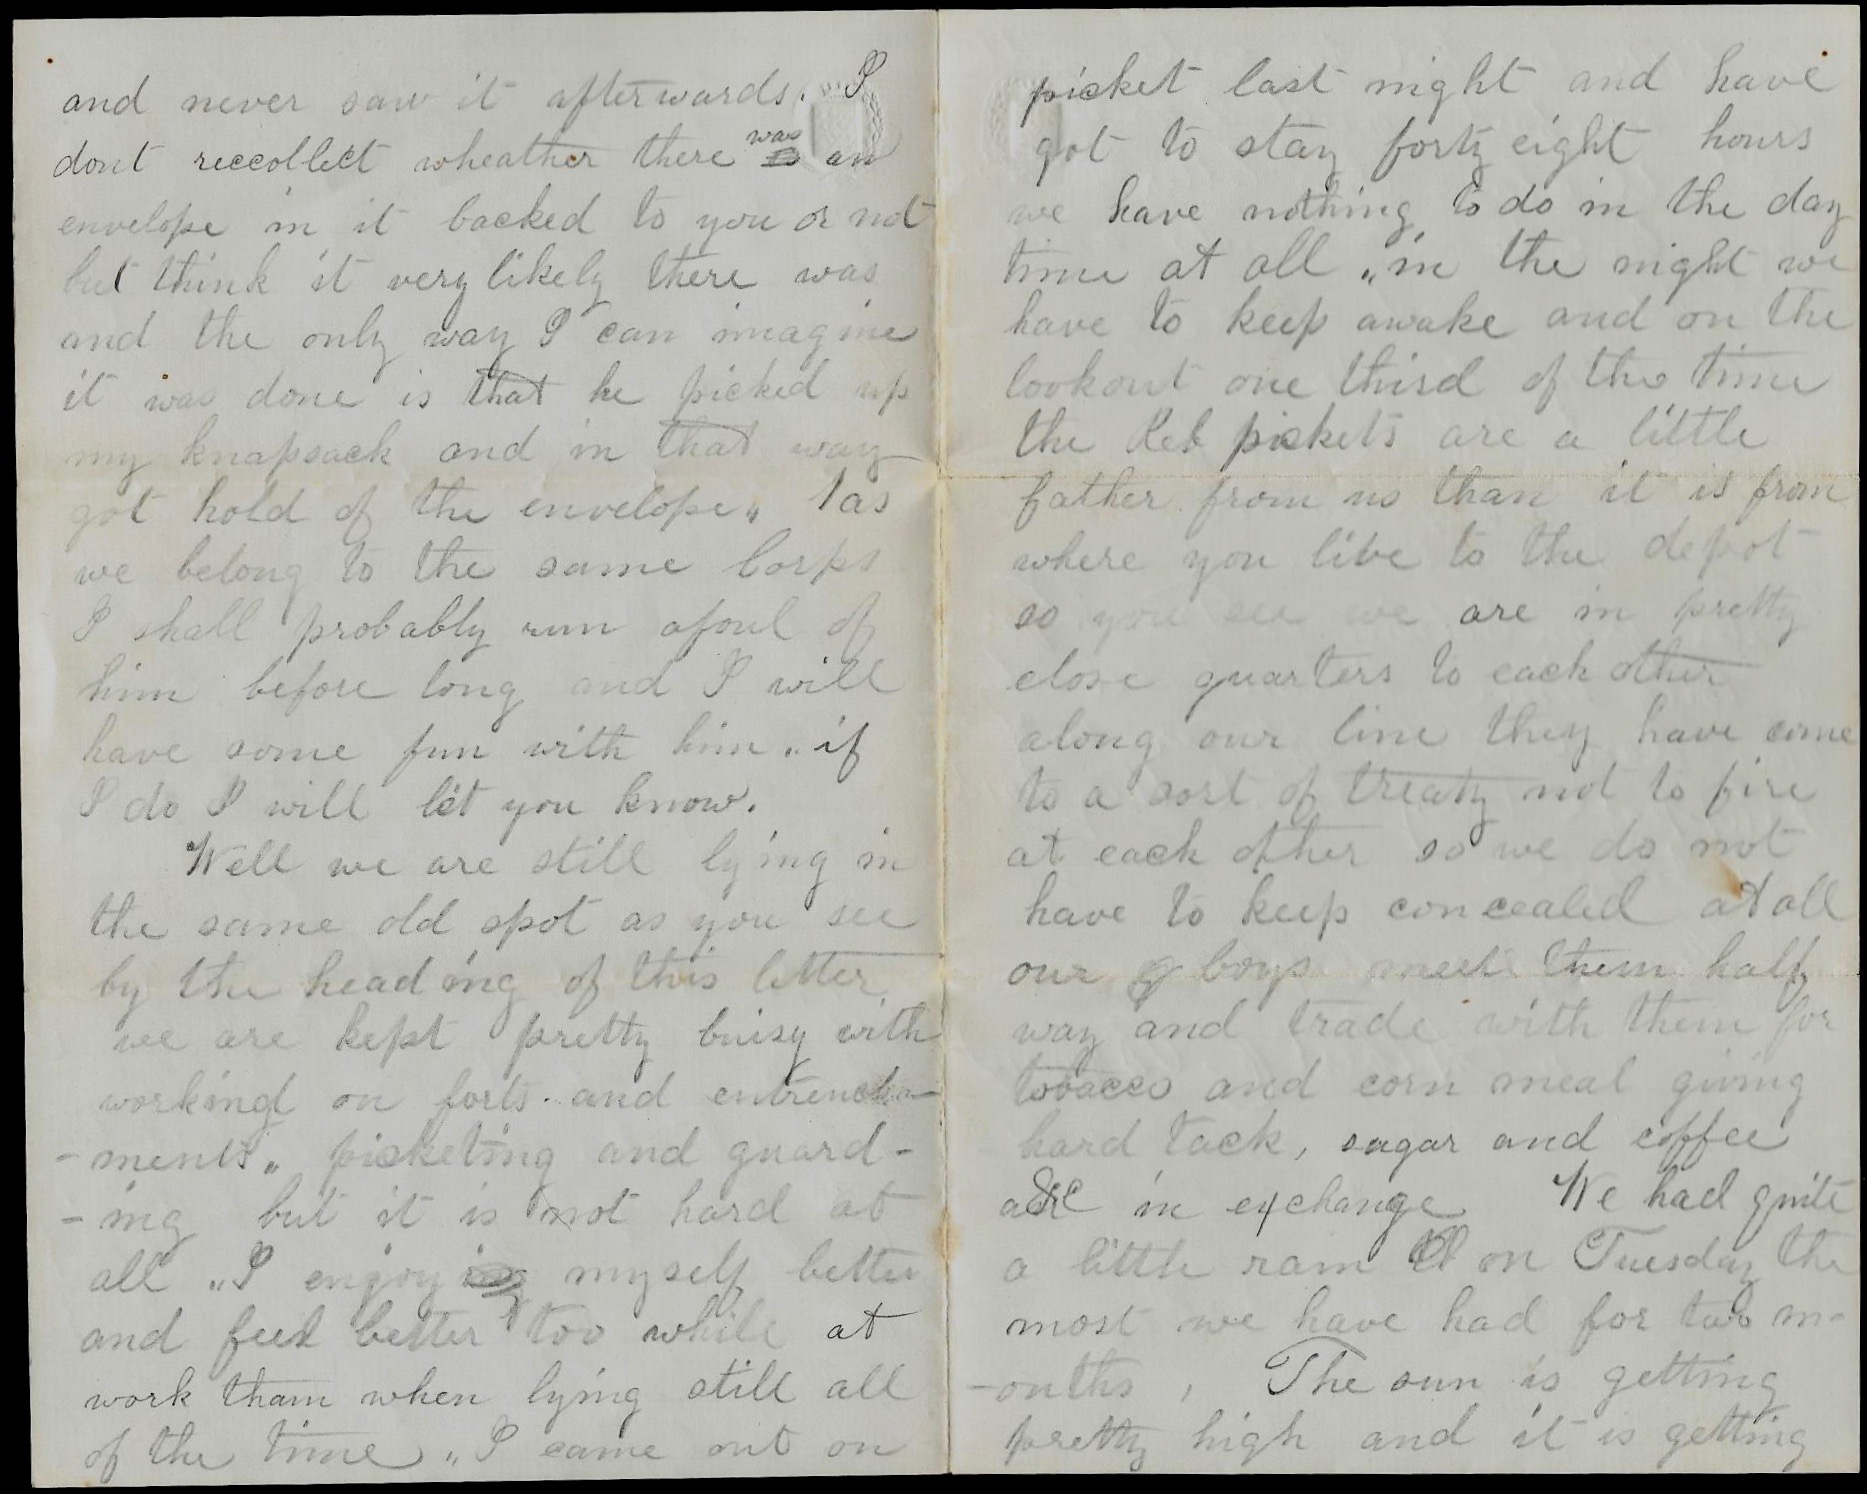 and never saw it afterwards. I
dont reccollect wheather there was an
envelope in it backed to you or not
but think it very likely there was
and the only way I can imagine
it was done is that he picked up
my knapsack and in that way
got hold of the envelope„ as
we belong to the same Corps
I shall probably run afoul of
him before long and I will
have some fun with him„ if
I do I will let you know.
Well we are still lying in
the same old spot as you see
by the heading of this letter
we are kept pretty buisy with
working on forts and entrench-
-ments„ picketing and guard-
-ing but it is not hard at
all „I enjoy myself better
and feel better too while at
work tham when lying still all
of the time„ I came out on
picket last night and have
got to stay forty eight hours
we have nothing to do in the day
time at all „in the night we
have to keep awake and on the
lookout one third of the time
the Reb pickets are a little
father from us than it is from
where you live to the depot
so you see we are in pretty
close quarters to each other
along our line they have come
to a sort of treaty not to fire
at each other so we do not
have to keep concealed at all
our boys meet them half
way and trade with them for
tobacco and corn meal giving
hard tack, sugar and coffee
&c in exchange We had quite
a little rain on Tuesday the
most we have had for two m-
-onths, The sun is getting
pretty high and it is getting